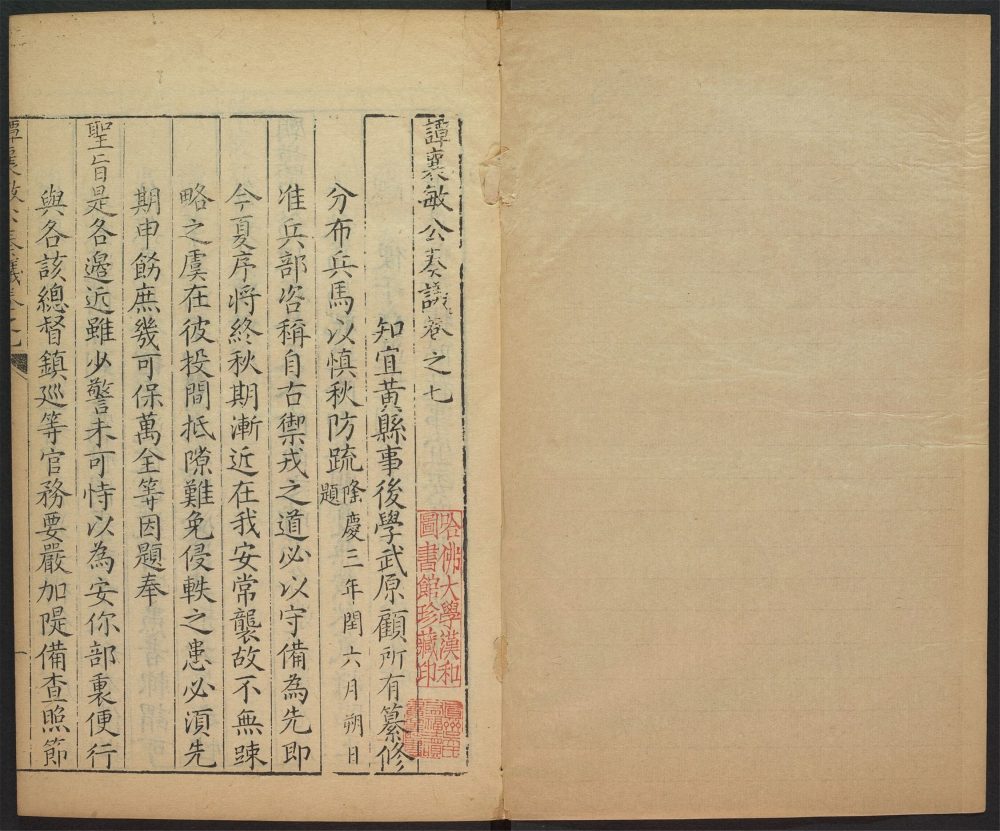 譚襄敏公奏議卷之七
知宜黃縣事後學武原顧所有纂修
分布兵馬以慎秋防疏隆慶三年閏六月朔日題
准兵部咨稱自古禦戎之道必以守備為先即
今夏序將終秋期漸近在我安常襲故不無踈
略之虞在彼投間抵隙難免侵軼之患必須先
期申飭庶幾可保萬全等因題奉
聖旨是各邊近雖少警未可恃以為安你部裏便行
與各該總督鎮廵等官務要嚴加隄備查照節
譚襄敏公奏議卷之七
一
哈佛大學漢和
圖書館珍藏印